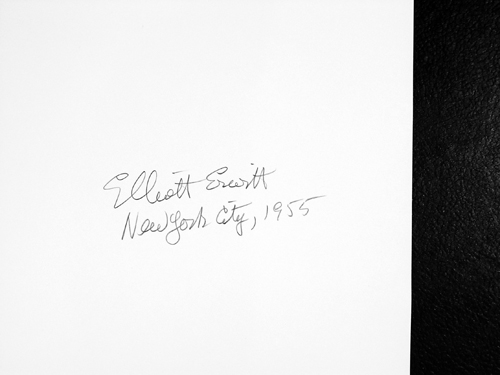 Elliott Erwitt
New York City, 1955